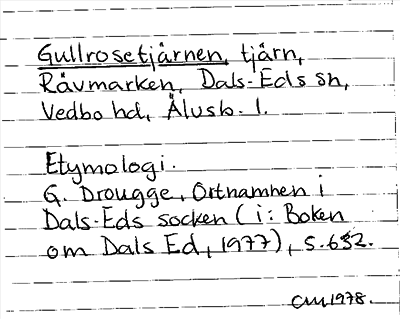 Gullrosetjärnen, tjärn,
Rävmarken, Dals-Eds sn,
Vedbo hd, Älvsb. l.
Etymologi.
G. Drougge, Ortnamnen i
Dals-Eds socken (i: Boken
om Dals Ed, 1977), s. 632.
CM 1978.